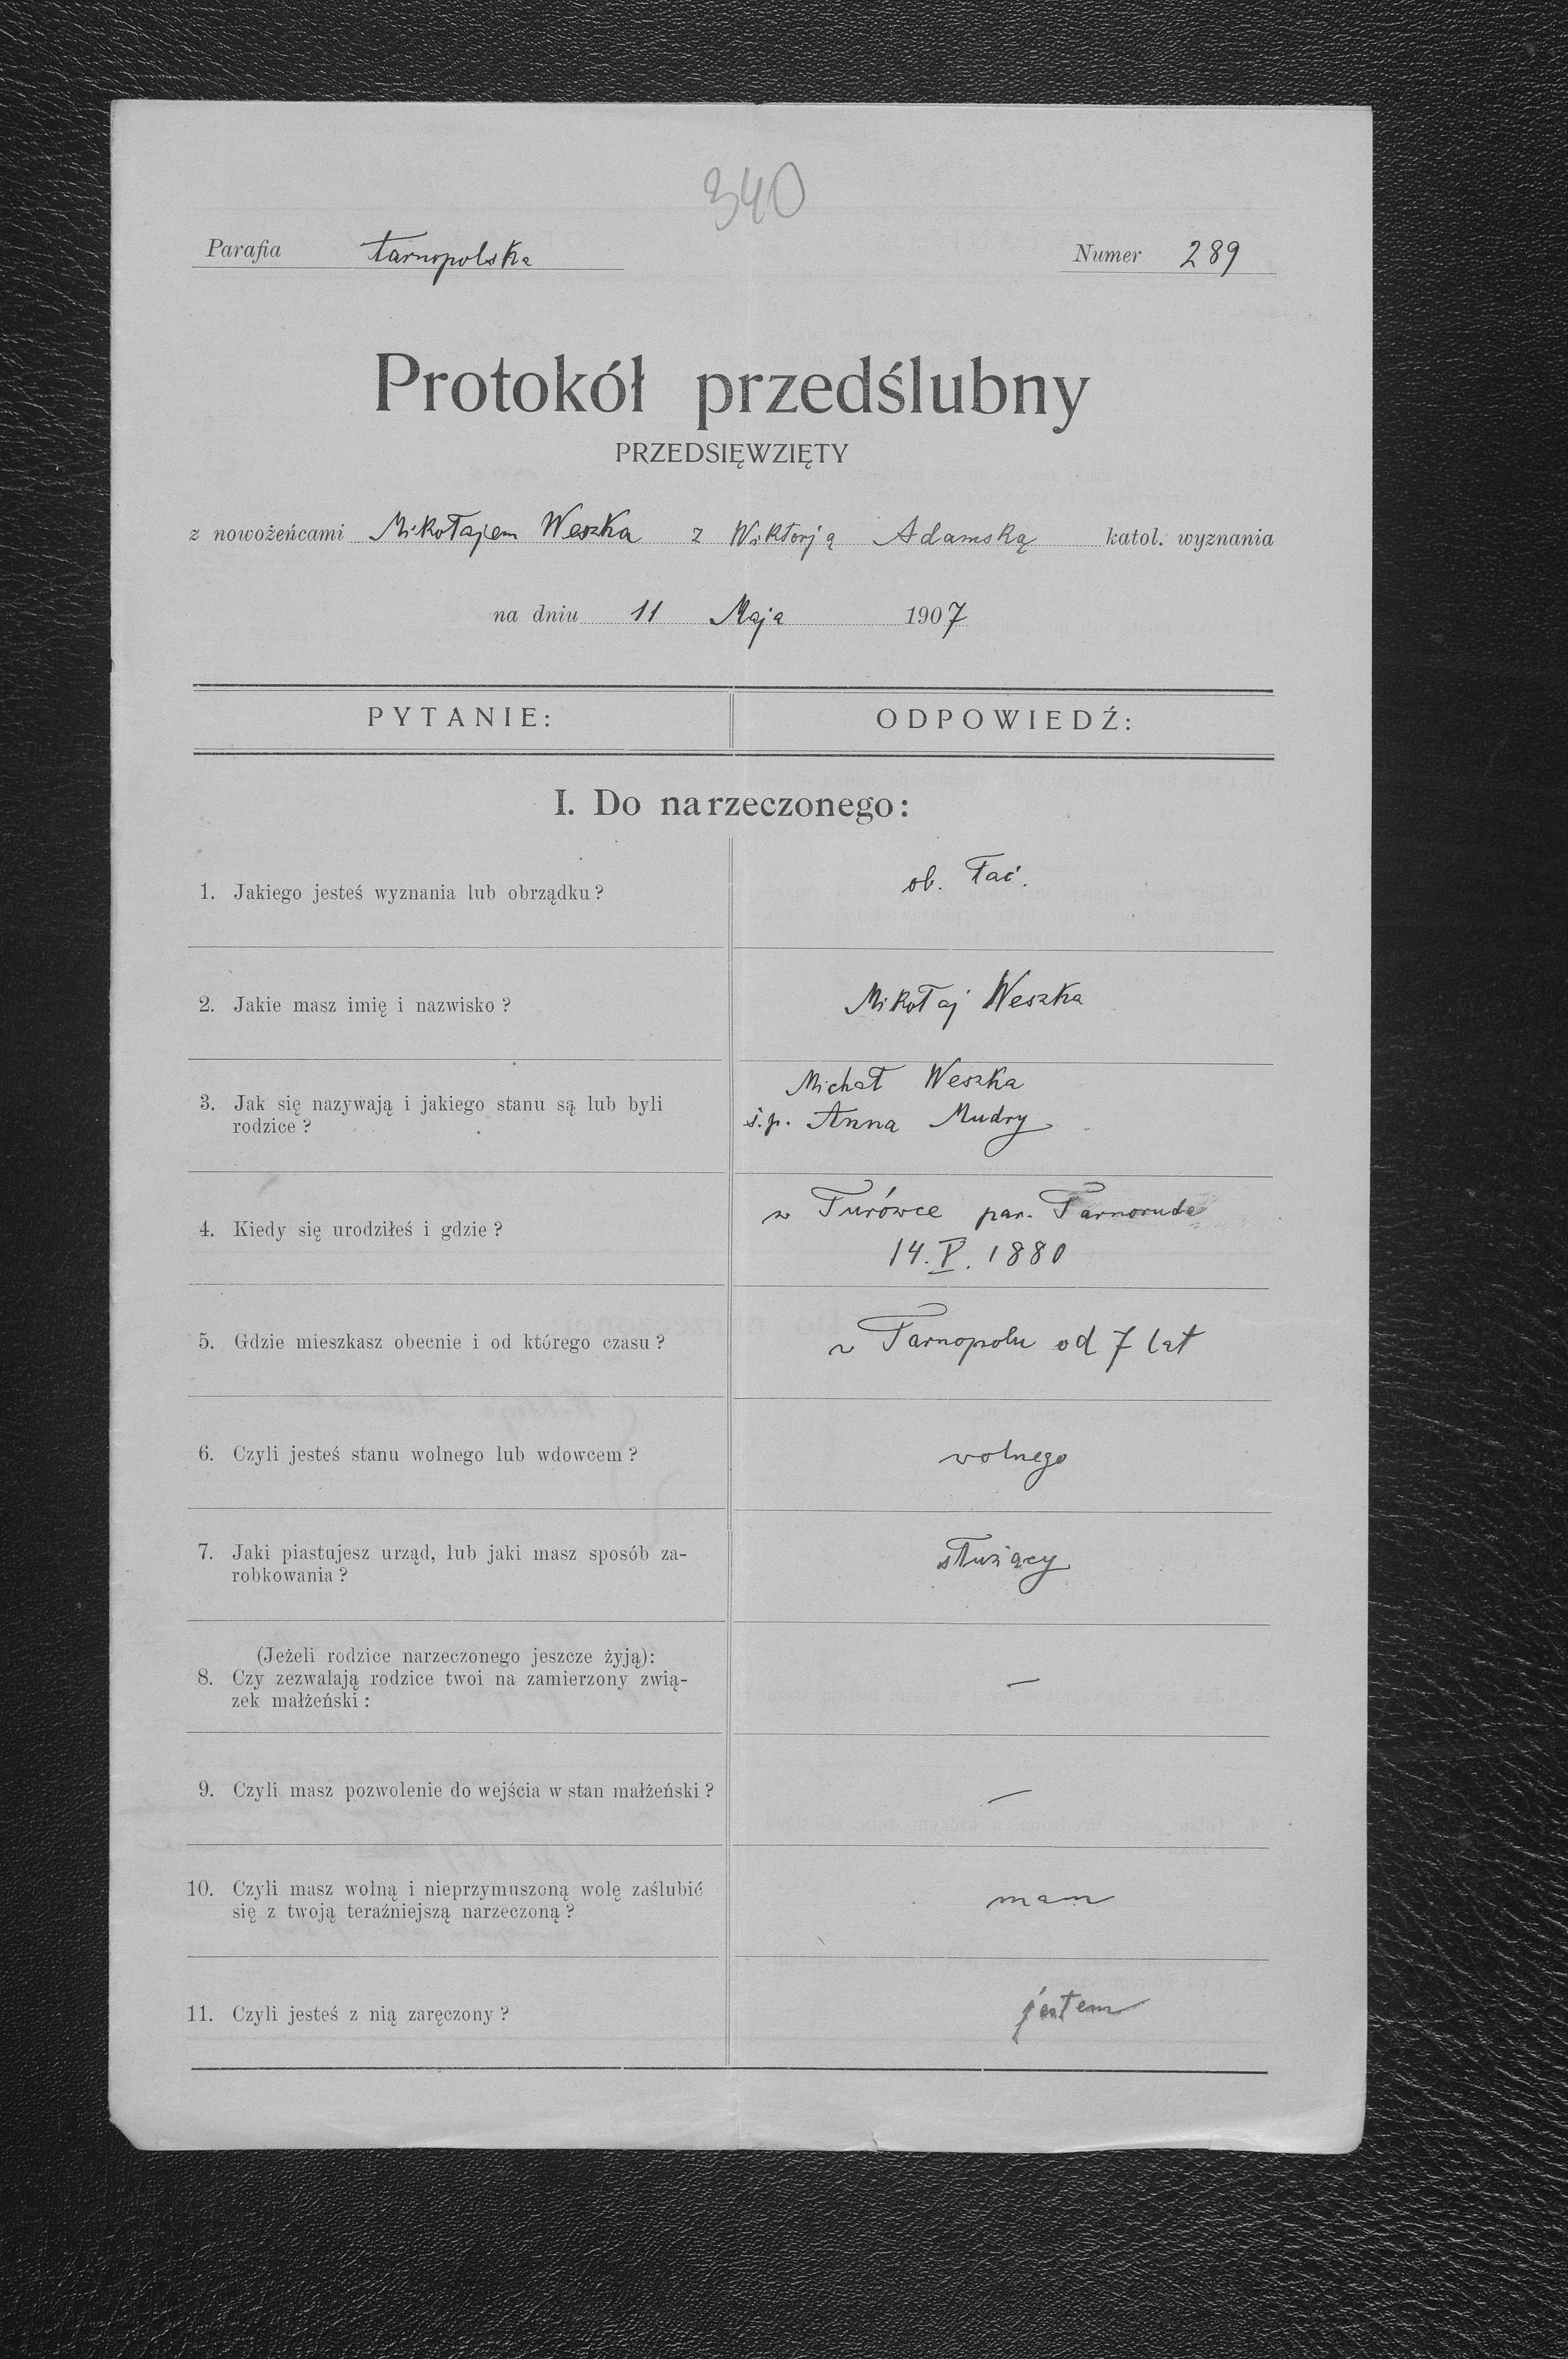 340
Parafia tarnopolska Numer 289
Protokół przedślubny
PRZEDSIĘWZIĘTY
z nowożeńcami Mikołajem Weszka z Wiktorją Adamską katol. wyznania
na dniu 11 Maja 1907
PYTANIE: ODPOWIEDŹ:
I. Do narzeczonego:
1. Jakiego jesteś wyznania lub obrządku? ob. łać.
2. Jakie masz imię i nazwisko? Mikołaj Weszka
3. Jak się nazywają i jakiego stanu są lub byli
rodzice?
Michał Weszka
ś.p. Anna Mudry
4. Kiedy się urodziłeś i gdzie?
w Turówce par. Tarnoruda
14.V.1880
5. Gdzie mieszkasz obecnie i od którego czasu? w Tarnopolu od 7 lat
6. Czyli jesteś stanu wolnego lub wdowcem? wolnego
7. Jaki piastujesz urząd, lub jaki masz sposób za-
robkowania?
służący
(Jeżeli rodzice narzeczonego jeszcze żyją):
8. Czy zezwalają rodzice twoi na zamierzony zwią-
zek małżeński:
—
9. Czyli masz pozwolenie do wejścia w stan małżeński? —
10. Czyli masz wolną i nieprzymuszoną wolę zaślubić
się z twoją teraźniejszą narzeczoną?
mam
11. Czyli jesteś z nią zaręczony? jestem